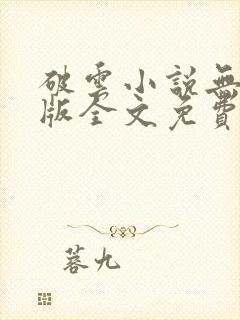 破雲小說無
版全文免費
蓉九